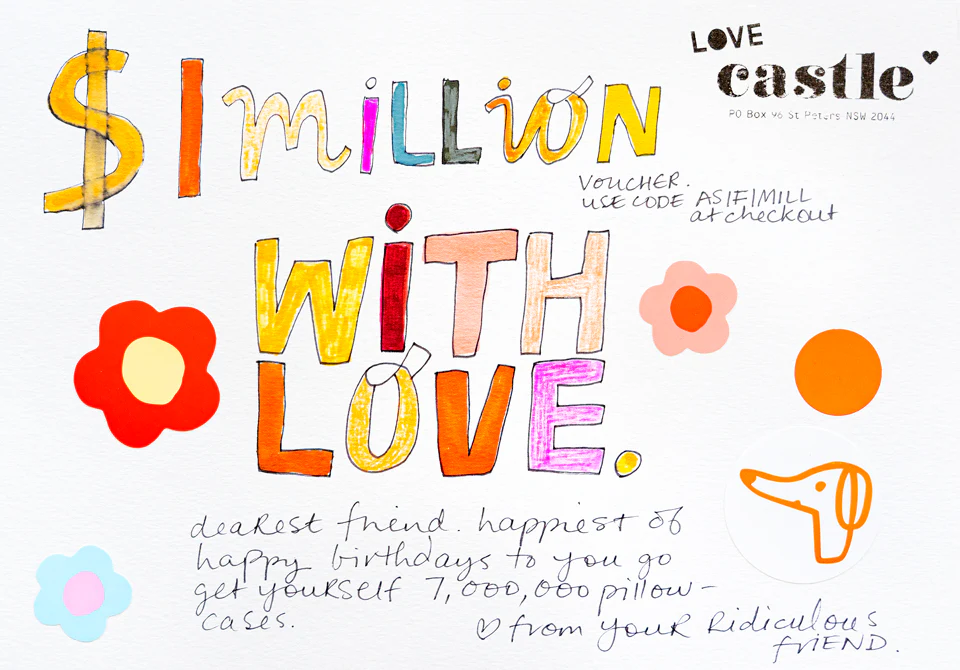 $1 million
LOVE
castle
PO Box 96 St Peters NSW 2044
VOUCHER.
USE CODE ASIF1MILL
at checkout
WiTH
LOVE.
deaRest friend. happiest of
happy birthdays to you go
get youRself 7,000,000 pillow-
cases.
♡ from youR Ridiculous
fRiEND.